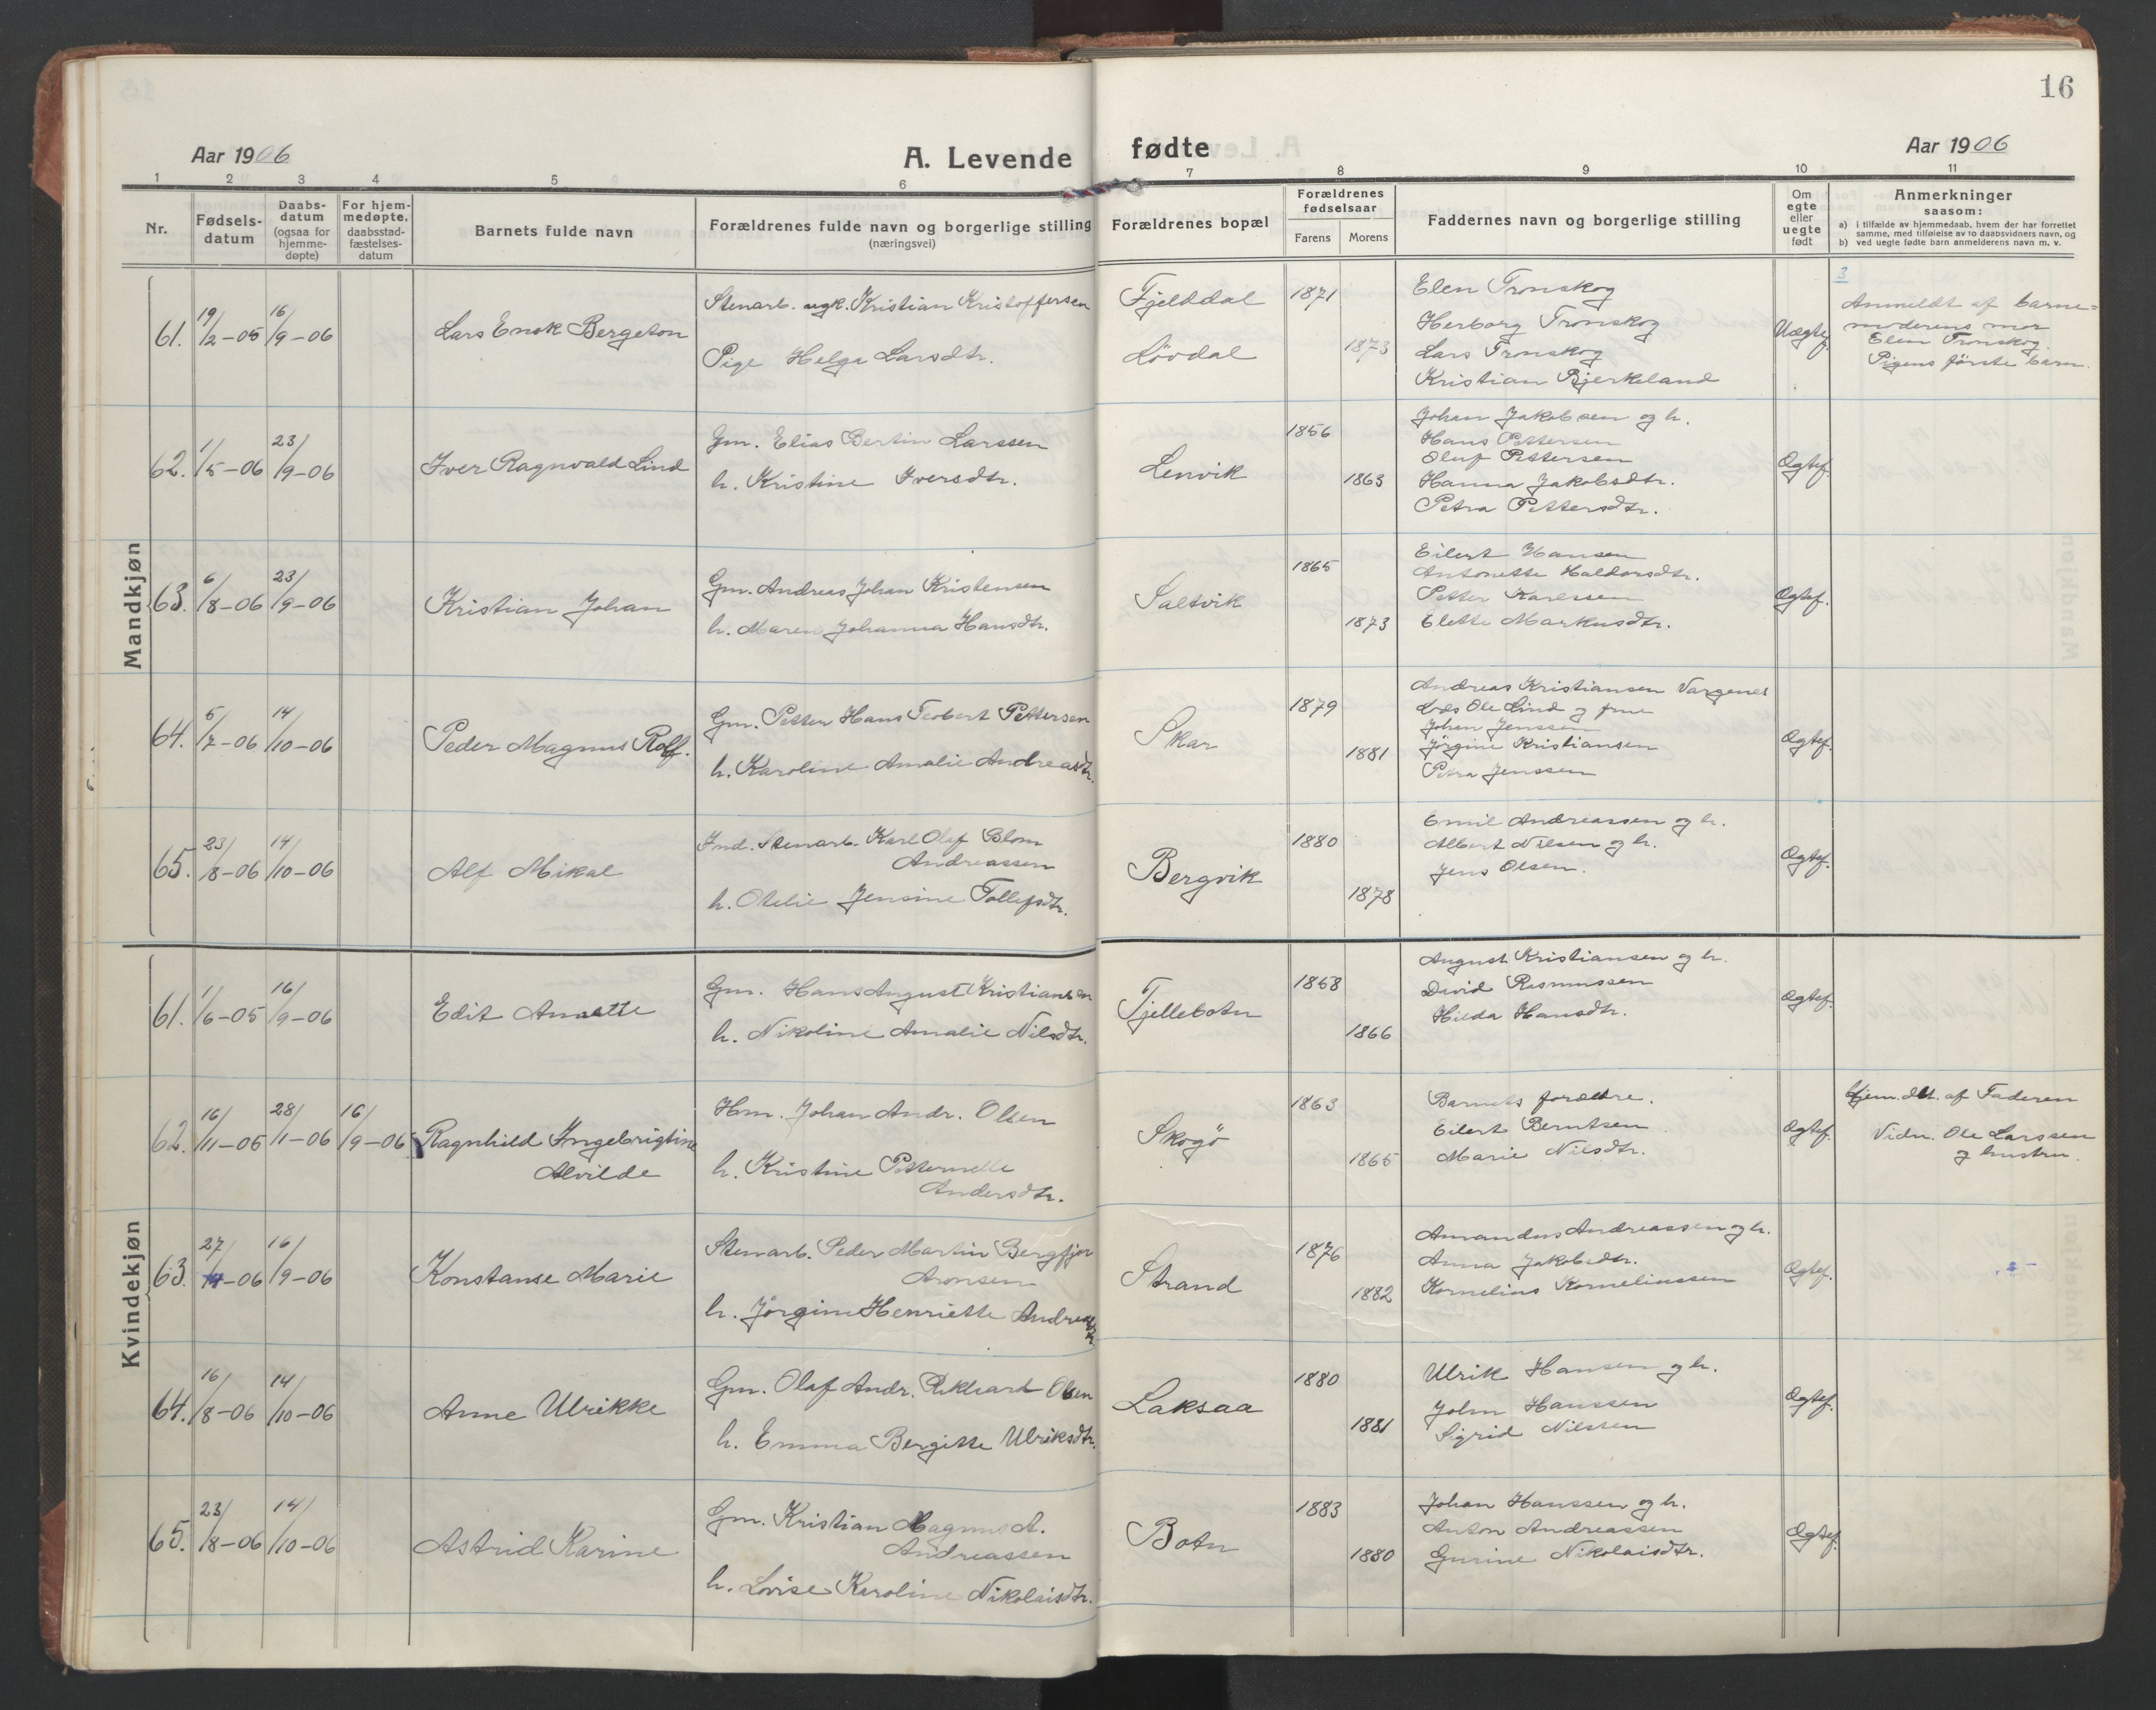 16
Aar 1906
A. Levende fødte
Aar 1906
1 2 3 4 5 6 7 8 9 10 11
Nr.
Fødsels-
datum
Daabs-
datum
(ogsaa for
hjemme-
døpte)
For hjem-
medøpte,
daabsstad-
fæstelses-
datum
Barnets fulde navn
Forældrenes fulde navn og borgerlige stilling
(næringsvei)
Forældrenes bopæl
Forældrenes
fødselsaar
Farens Morens
Faddernes navn og borgerlige stilling
Om
egte
eller
uegte
født
Anmerkninger
saasom:
a) i tilfælde av hjemmedaab, hvem der har forrettet
samme, med tilføielse av to daabsvidners navn, og
b) ved uegte fødte barn anmelderens navn m. v.
Mandkjøn
61. 19/2-05 16/9-06 Lars Enok Bergeton
Stenarb. ugk. Kristian Kristoffersen
Pige Helga Larsdtr.
Fjelddal
Lövdal
1871
1873
Elen Tronskog
Herborg Tronskog
Lars Tronskog
Kristian Bjerkeland
Uægtef.
3
Anmeldt af barne=
moderens mor
Elen Tronskog.
Pigens förste barn.
62. 1/5-06 23/9-06 Iver Ragnvald Lind
Gm. Elias Bertin Larssen
h. Kristine Iversdtr.
Lenvik
1856
1863
Johan Jakobsen og h.
Hans Pettersen
Oluf Pettersen
Hanna Jakobsdtr.
Petra Pettersdtr.
Ægtef.
63. 6/8-06 23/9-06 Kristian Johan
Gm. Andreas Johan Kristensen
h. Maren Johanna Hansdtr.
Saltvik
1865
1873
Eilert Hansen
Antonette Haldorsdtr.
Petter Karlssen
Elette Markusdtr.
Ægtef.
64. 5/7-06 14/10-06 Peder Magnus Rolf.
Gm. Petter Hans Teobert Pettersen
h. Karoline Amalie Andreasdtr.
Skar
1879
1881
Andreas Kristiansen Vargenes
Ole Lind og frue
Johan Jenssen
Jörgine Kristiansen
Petra Jenssen
Ægtef.
65. 23/8-06 14/10-06 Alf Mikal
Ind. Stenarb. Karl Olaf Blom
Andreassen
h. Otelie Jensine Tollefsdtr.
Bergvik
1880
1878
Emil Andreassen og h.
Albert Nilsen og h.
Jens Olsen.
Ægtef.
Kvindekjøn
61. 1/6-05 16/9-06 Edit Anaette
Gm. Hans August Kristiansen
h. Nikoline Amalie Nilsdtr.
Fjellebotn
1868
1866
August Kristiansen og h.
David Rasmussen
Hilda Hansdtr.
Ægtef.
62. 16/11-05 28/1-06 16/9-06 Ragnhild Ingebrigtine
Alvilde
Hm. Johan Andr. Olsen
h. Kristine Petternelle
Andersdtr.
Skogö
1863
1865
Barnets forældre.
Eilert Berntsen
Marie Nilsdtr.
Ægtef.
Hjem.dbt. af Faderen
Vidn. Ole Larssen
og hustru.
63. 27/ -06 16/9-06 Konstanse Marie
Stenarb. Peder Martin Bergfjor
Aronsen
h. Jörgine Henriette Andreasdtr.
Strand
1876
1882
Amandus Andreassen og h.
Anna Jakobsdtr.
Kornelius Korneliussen
Ægtef.
64. 16/8-06 14/10-06 Anne Ulrikke
Gm. Olaf Andr. Rikhard Olsen
h. Emma Bergitte Ulriksdtr.
Laksaa
1880
1881
Ulrik Hansen og h.
John Hanssen
Sigrid Nilssen
Ægtef.
65. 23/8-06 14/10-06 Astrid Karine
Gm. Kristian Magnus A.
Andreassen
h. Lovise Karoline Nikolaisdtr.
Botn
1883
1880
Johan Hanssen og h.
Anton Andreassen
Gurine Nikolaisdtr.
Ægtef.